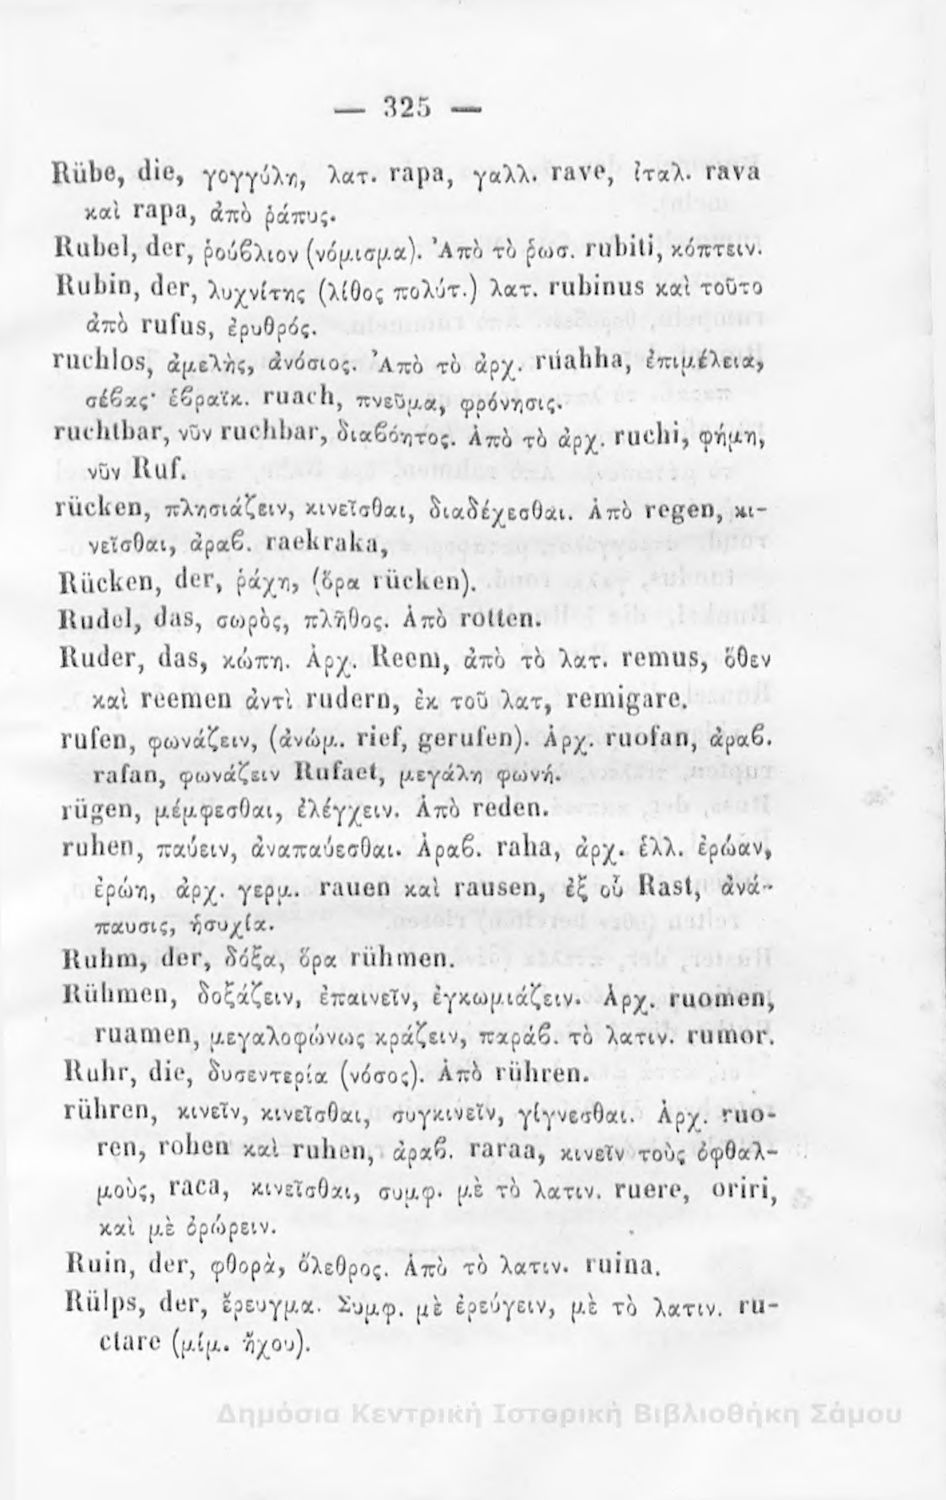 — 325 —
Rübe, die, γογγύλη, λατ. rapa, γαλλ. rave, ἰταλ. rava
καὶ rapa, ἀπὸ ῥάπυς.
Rubel, der, ῥούβλιον (νόμισμα). Ἀπὸ τὸ ῥωσ. rubiti, κόπτειν.
Rubin, der, λυχνίτης (λίθος πολύτ.) λατ. rubinus καὶ τοῦτο
ἀπὸ rufus, ἐρυθρός.
ruchlos, ἀμελὴς, ἀνόσιος. Ἀπὸ τὸ ἀρχ. rúahha, ἐπιμέλεια,
σέβας· ἑβραϊκ. ruach, πνεῦμα, φρόνησις.
ruchtbar, νῦν ruchbar, διαβόητος. Ἀπὸ τὸ ἀρχ. ruchi, φήμη,
νῦν Ruf.
rücken, πλησιάζειν, κινεῖσθαι, διαδέχεσθαι. Ἀπὸ regen, κι-
νεῖσθαι, ἀραβ. raekraka,
Rücken, der, ῥάχη, (ὅρα rücken).
Rudel, das, σωρὸς, πλῆθος. Ἀπὸ rotten.
Ruder, das, κώπη. Ἀρχ. Reem, ἀπὸ τὸ λατ. remus, ὅθεν
καὶ reemen ἀντὶ rudern, ἐκ τοῦ λατ, remigare.
rufen, φωνάζειν, (ἀνώμ. rief, gerufen). Ἀρχ. ruofan, ἀραβ.
rafan, φωνάζειν Rufaet, μεγάλη φωνή.
rügen, μέμφεσθαι, ἐλέγχειν. Ἀπὸ reden.
ruhen, παύειν, ἀναπαύεσθαι. Ἀραβ. raha, ἀρχ. ἑλλ. ἐρώαν,
ἐρώη, ἀρχ. γερμ. rauen καὶ rausen, ἐξ οὗ Rast, ἀνά-
παυσις, ἡσυχία.
Ruhm, der, δόξα, ὅρα rühmen.
Rühmen, δοξάζειν, ἐπαινεῖν, ἐγκωμιάζειν. Ἀρχ. ruomen,
ruamen, μεγαλοφώνως κράζειν, παράβ. τὸ λατιν. rumor.
Ruhr, die, δυσεντερία (νόσος). Ἀπὸ rühren.
rühren, κινεῖν, κινεῖσθαι, συγκινεῖν, γίγνεσθαι. Ἀρχ. ruo-
ren, rohen καὶ ruhen, ἀραβ. raraa, κινεῖν τοὺς ὀφθαλ-
μοὺς, raca, κινεῖσθαι, συμφ. μὲ τὸ λατιν. ruere, oriri,
καὶ μὲ ὀρώρειν.
Ruin, der, φθορὰ, ὄλεθρος. Ἀπὸ τὸ λατιν. ruina.
Rülps, der, ἔρευγμα. Συμφ. μὲ ἐρεύγειν, μὲ τὸ λατιν. ru-
ctare (μίμ. ἤχου).
Δημόσια Κεντρική Ιστορική Βιβλιοθήκη Σάμου